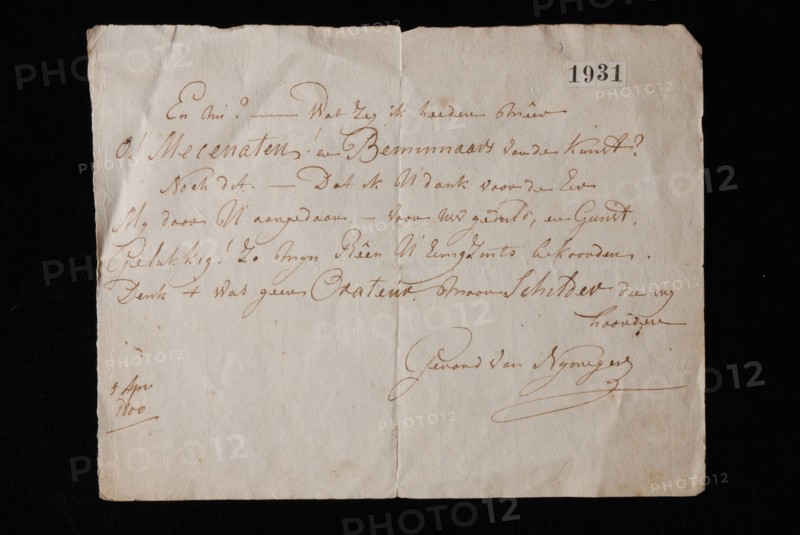 1931
En nu? — Wat zeg ik heeden meer
O! Mecenaten! en Beminnaars van de Kunst?
Noch dit. — Dat ik U dank voor de Eer
My door U aangedaan. — voor uw geduld, en Gunst.
Gelukkig! Zo myn Rêen U Eenigzints bekoorden.
Denk t was geen Orateur. maar Schilder die wy
hoorden
Gerard van Nymegen
5 Apr
1800
PHOTO12